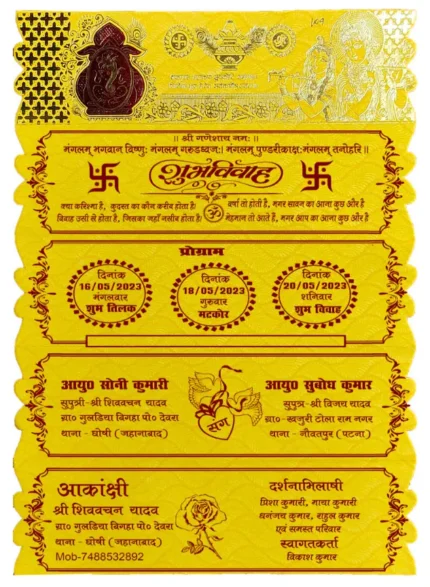 ॥ श्री गणेशाय नमः ॥
मंगलम् भगवान विष्णुः मंगलम् गरुडध्वजः। मंगलम् पुण्डरीकाक्षः मंगलम् तनोहरि॥
शुभविवाह
क्या करिश्मा है, कुदरत का कौन करीब होता है।
विवाह उसी से होता है, जिसका जहाँ नसीब होता है।
ॐ
वर्षा तो होती है, मगर सावन का आना कुछ और है
मेहमान तो आते है, मगर आप का आना कुछ और है
प्रोग्राम
दिनांक
16/05/2023
मंगलवार
शुभ तिलक
दिनांक
18/05/2023
गुरुवार
मटकोर
दिनांक
20/05/2023
शनिवार
शुभ विवाह
आयु० सोनी कुमारी
सुपुत्री-श्री शिववचन यादव
ग्रा० गुलडिया बिगहा पो० देवरा
थाना - घोषी (जहानाबाद)
संग
आयु० सुबोध कुमार
सुपुत्र-श्री विजय यादव
ग्रा०-खजुरी टोला राम नगर
थाना - गौवतपुर (पटना)
आकांक्षी
श्री शिववचन यादव
ग्रा० गुलडिया बिगहा पो० देवरा
थाना - घोषी (जहानाबाद)
Mob-7488532892
दर्शनाभिलाषी
प्रिशा कुमारी, माया कुमारी
धनंजय कुमार, राहुल कुमार
एवं समस्त परिवार
स्वागतकर्ता
विकाश कुमार